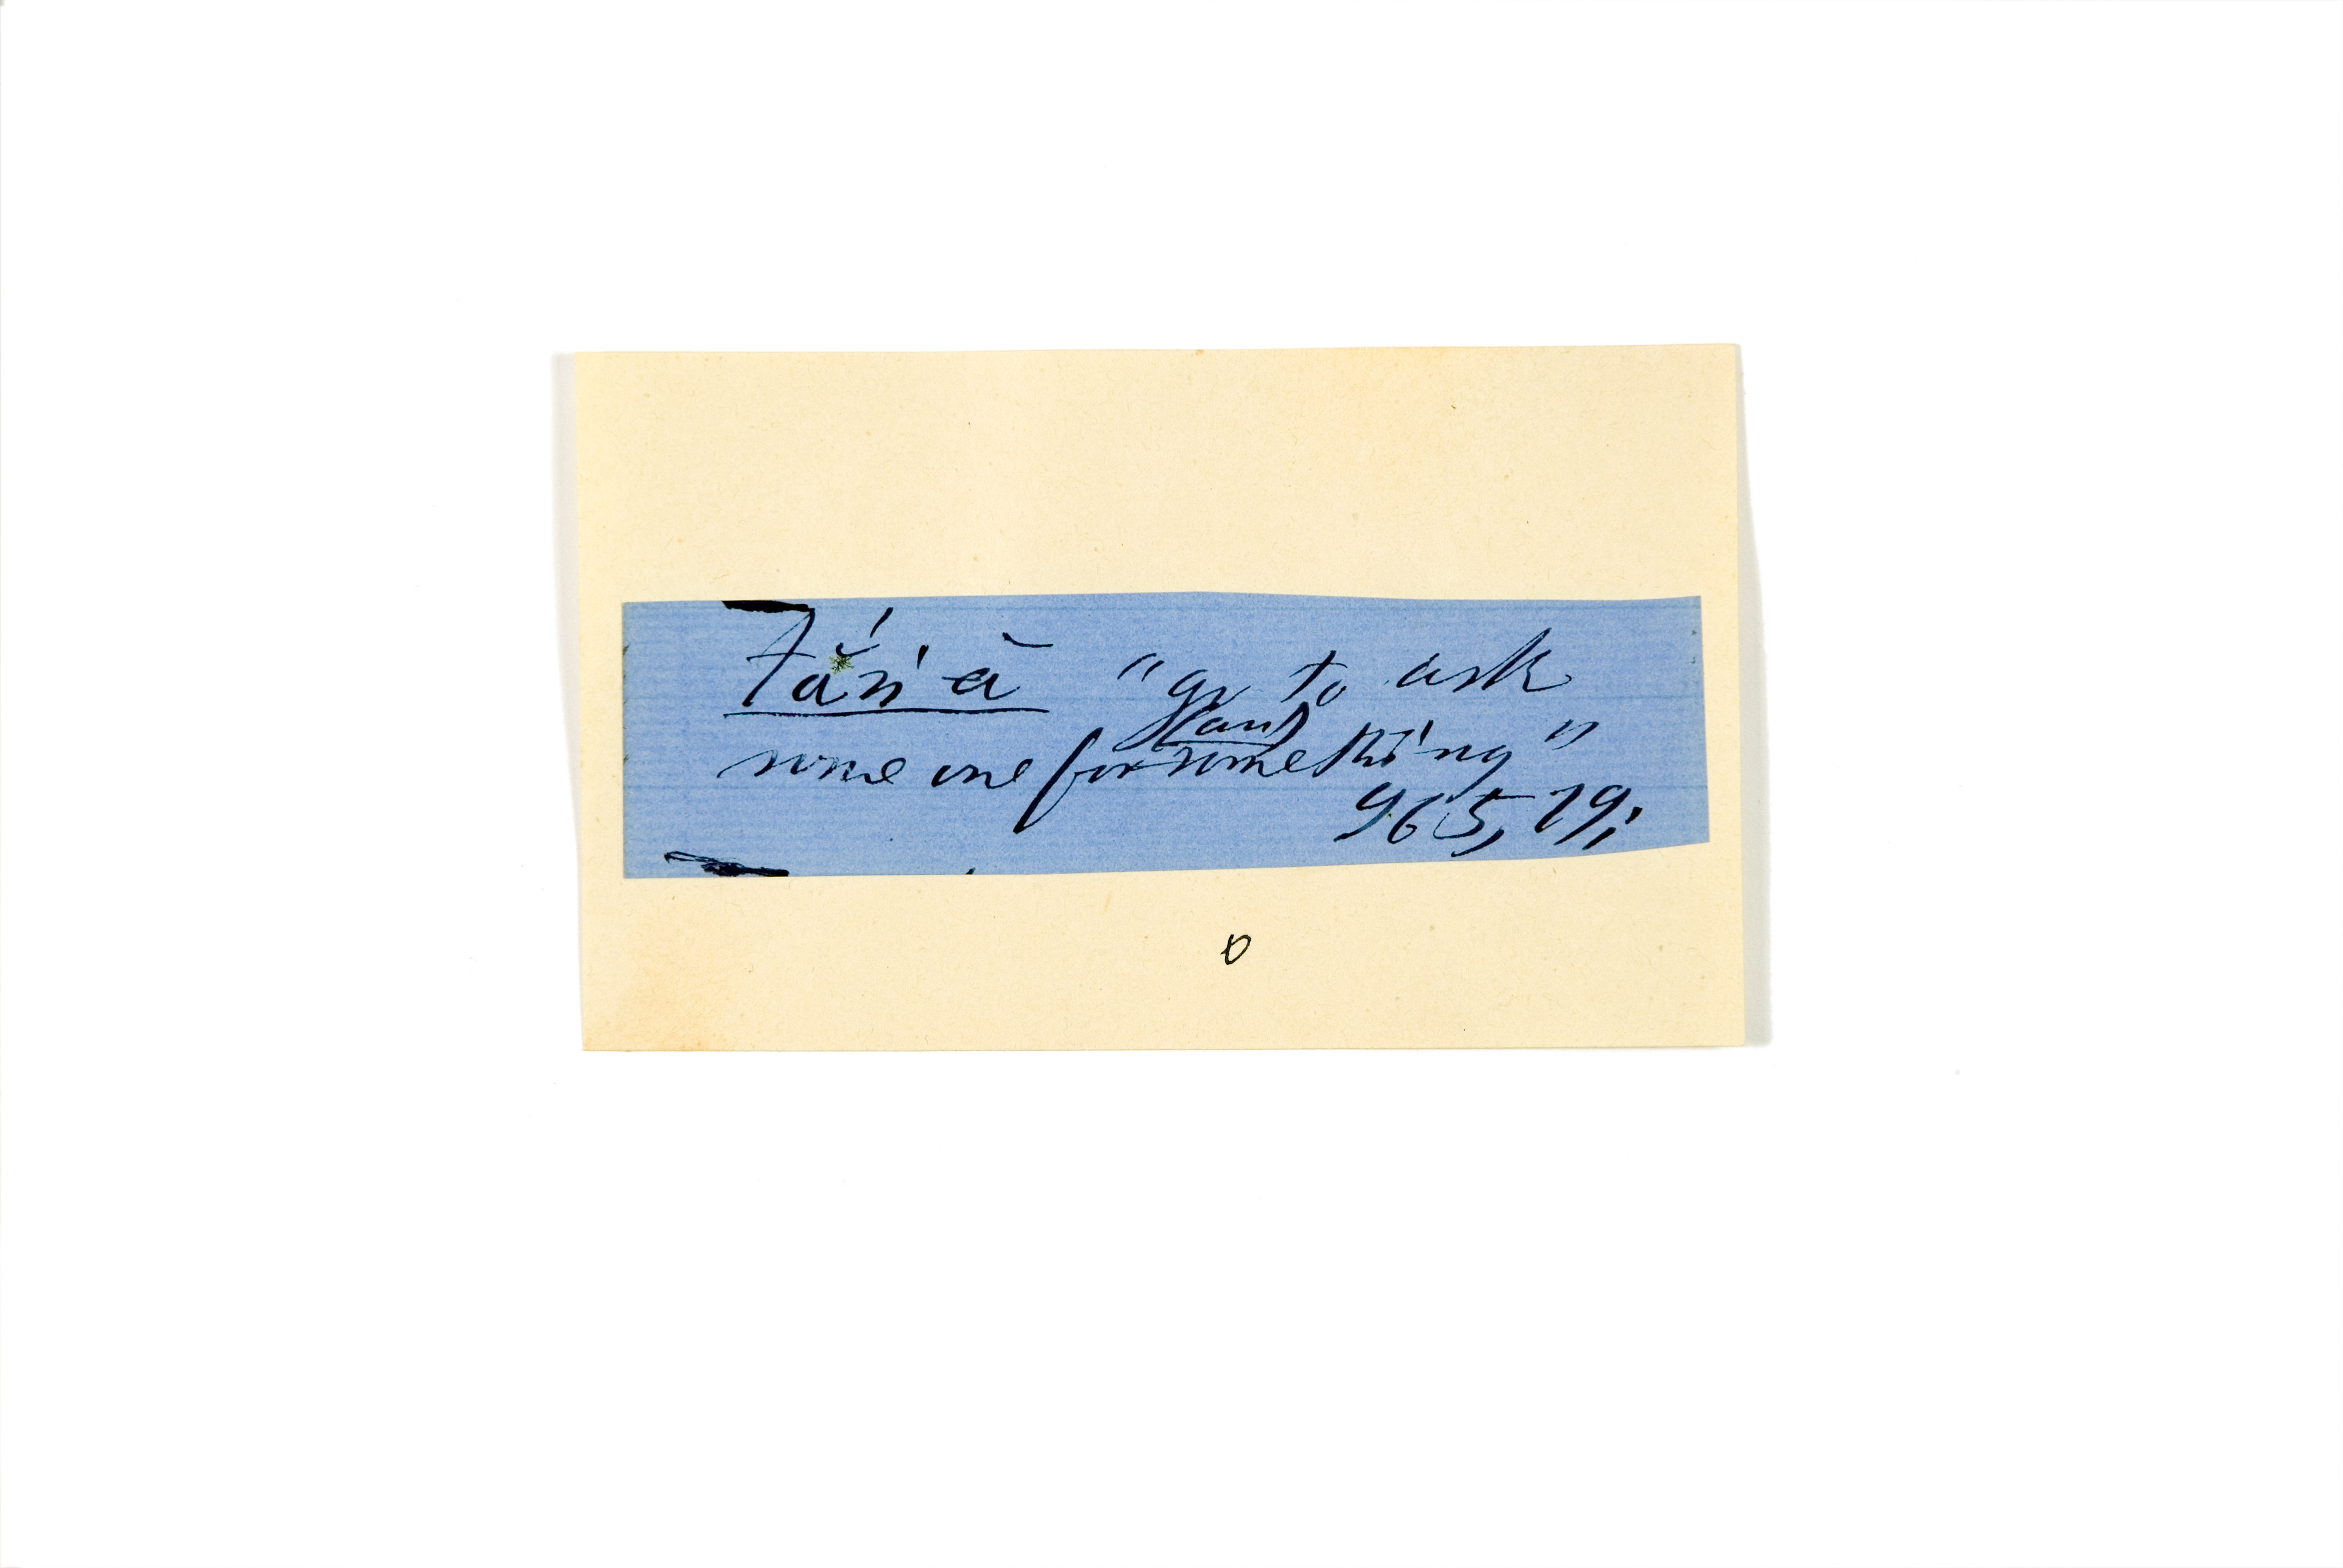 tǎń ā "go to ask
(an)
some one for something"
965, 29;
0